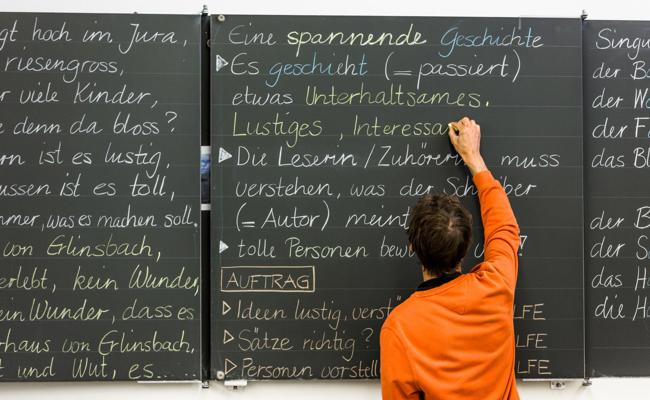 gt hoch im Jura,
riesengross,
r viele Kinder,
e denn da bloss?
rn ist es lustig,
ussen ist es toll,
mmer, was es machen soll.
von Glinsbach,
erlebt, kein Wunder,
ein Wunder, dass es
rhaus von Glinsbach,
t und Wut, es...
Eine spannende Geschichte
Es geschieht (= passiert)
etwas Unterhaltsames.
Lustiges, Interessa
Die Leserin/Zuhörerin muss
verstehen, was der Schreiber
(= Autor) meint
tolle Personen
AUFTRAG
Ideen lustig, verst LFE
Sätze richtig? LFE
Personen vorstell LFE
Singu
der B
der W
der F
das Bl
der B
der S
das H
die H